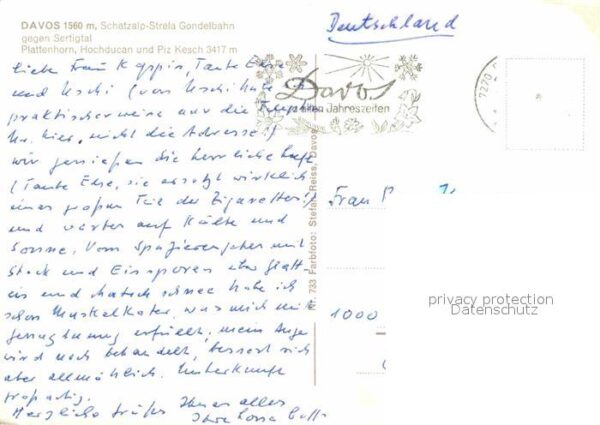 DAVOS 1560 m, Schatzalp-Strela Gondelbahn
gegen Sertigtal
Plattenhorn, Hochducan und Piz Kesch 3417 m
Deutschland
Davos
zu allen Jahreszeiten
7270
Liebe Frau Koppin, Tante Else
und Uschi (von Uschi habe ich
praktischerweise nur die Telephon
Nr. hier, nicht die Adresse)
wir geniessen die herrliche Luft
(Tante Else, sie ersetzt wirklich
einen großen Teil der Zigaretten!)
und warten auf Kälte und
Sonne. Vom Spazierengehen mit
Stock und Eissporen über Glatt-
eis und Matschschnee habe ich
schon Muskelkater, was mich mit
Genugtuung erfüllt, mein Auge
wird noch behandelt, bessert sich
aber allmählich. Unterkunft
großartig.
Herzliche Grüße Ihnen allen
Ihre
Nr. 733 Farbfoto: Stefan Reiss, Davos
Frau
1000
privacy protection
Datenschutz